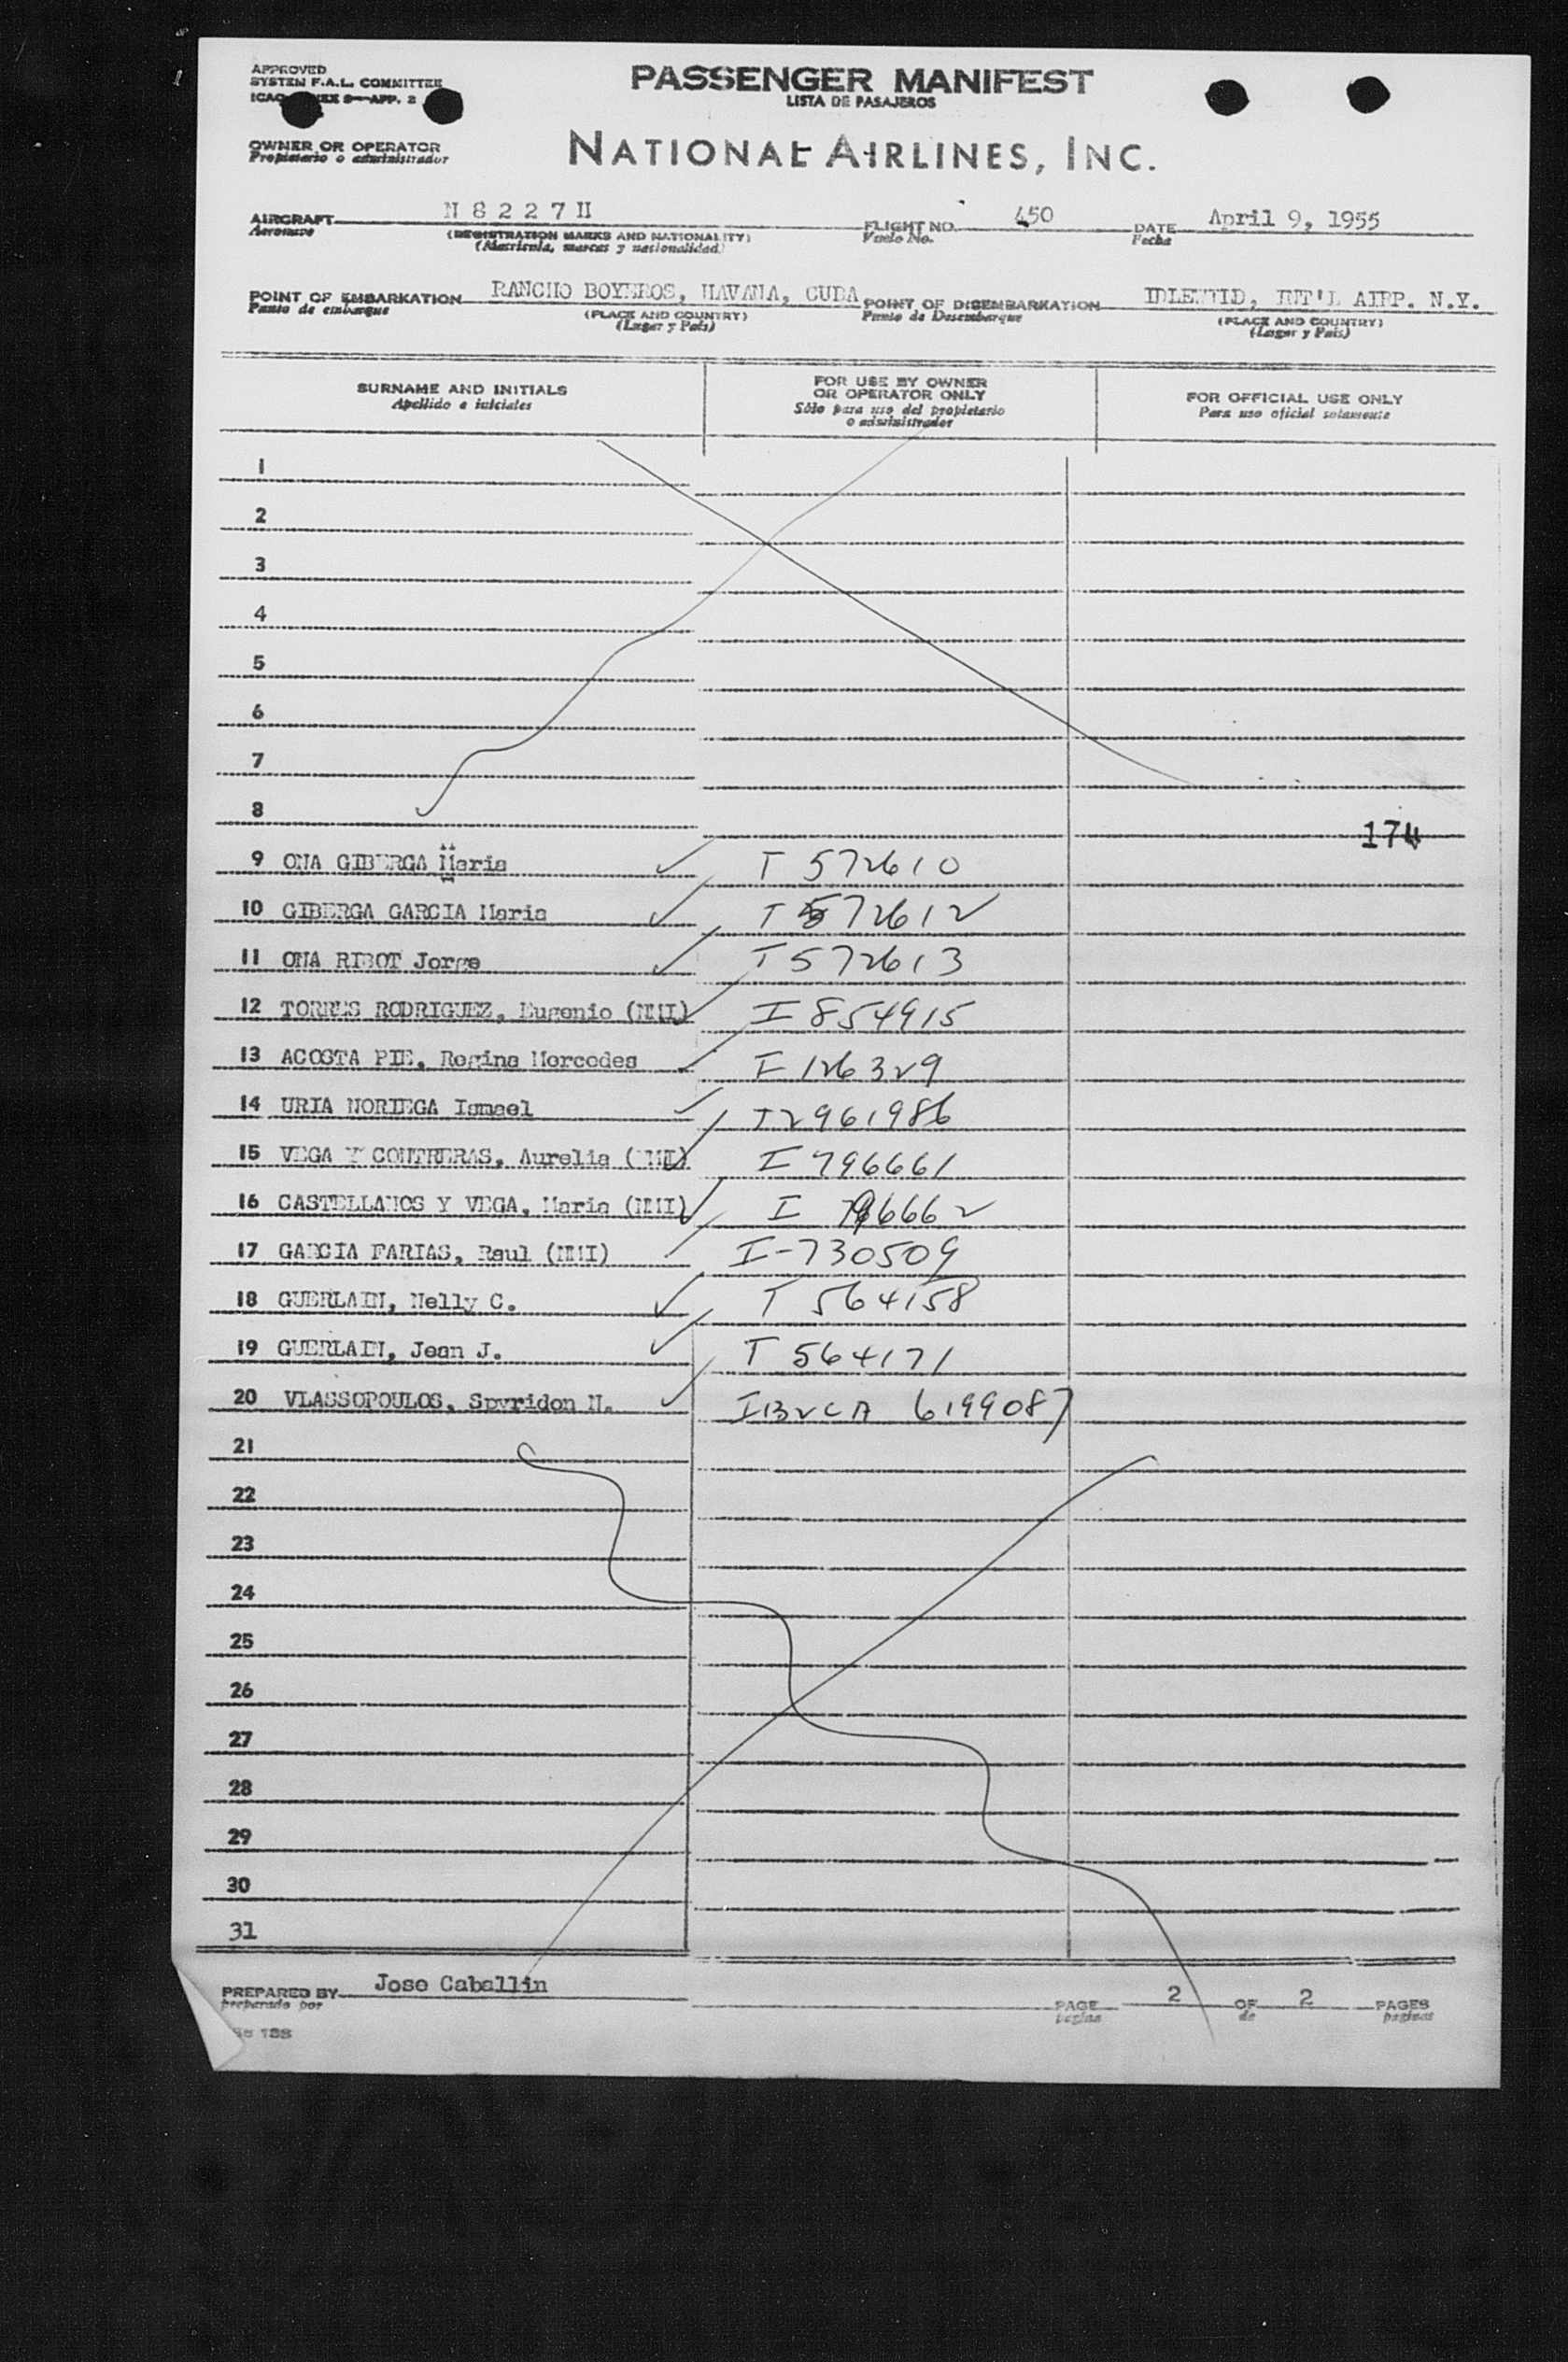 APPROVED
SYSTEM F.A.L. COMMITTEE
APP. 2
PASSENGER MANIFEST
LISTA DE PASAJEROS
OWNER OR OPERATOR
Propietario o administrador
NATIONAL AIRLINES, INC.
AIRCRAFT N 8 2 2 7 H FLIGHT NO. 450 DATE April 9, 1955
Aeronave (REGISTRATION MARKS AND NATIONALITY) Vuelo No. Fecha
(Matricula, marcas y nacionalidad)
POINT OF EMBARKATION RANCHO BOYEROS, HAVANA, CUBA POINT OF DISEMBARKATION IDLEWILD, INT'L AIRP. N.Y.
Punto de embarque (PLACE AND COUNTRY) Punto de Desembarque (PLACE AND COUNTRY)
(Lugar y País) (Lugar y País)
SURNAME AND INITIALS FOR USE BY OWNER OR OPERATOR ONLY FOR OFFICIAL USE ONLY
Apellido e iniciales Sólo para uso del propietario o administrador Para uso oficial solamente
1
2
3
4
5
6
7
8
174
9 ONA GIBERGA Maria T 572610
10 GIBERGA GARCIA Maria T 572612
11 ONA RIBOT Jorge T 572613
12 TORRES RODRIGUEZ, Eugenio (NMI) I 854915
13 ACOSTA PIE, Regina Mercedes I 126329
14 URIA NORIEGA Ismael I 2961986
15 VEGA Y CONTRERAS, Aurelia (NMI) I 796661
16 CASTELLANOS Y VEGA, Maria (NMI) I 796662
17 GARCIA FARIAS, Raul (NMI) I-730509
18 GUERLAIN, Nelly C. T 564158
19 GUERLAIN, Jean J. T 564171
20 VLASSOPOULOS, Spyridon N. 6199087
21
22
23
24
25
26
27
28
29
30
31
PREPARED BY Jose Caballin PAGE 2 OF 2 PAGES
preparado por pagina de paginas